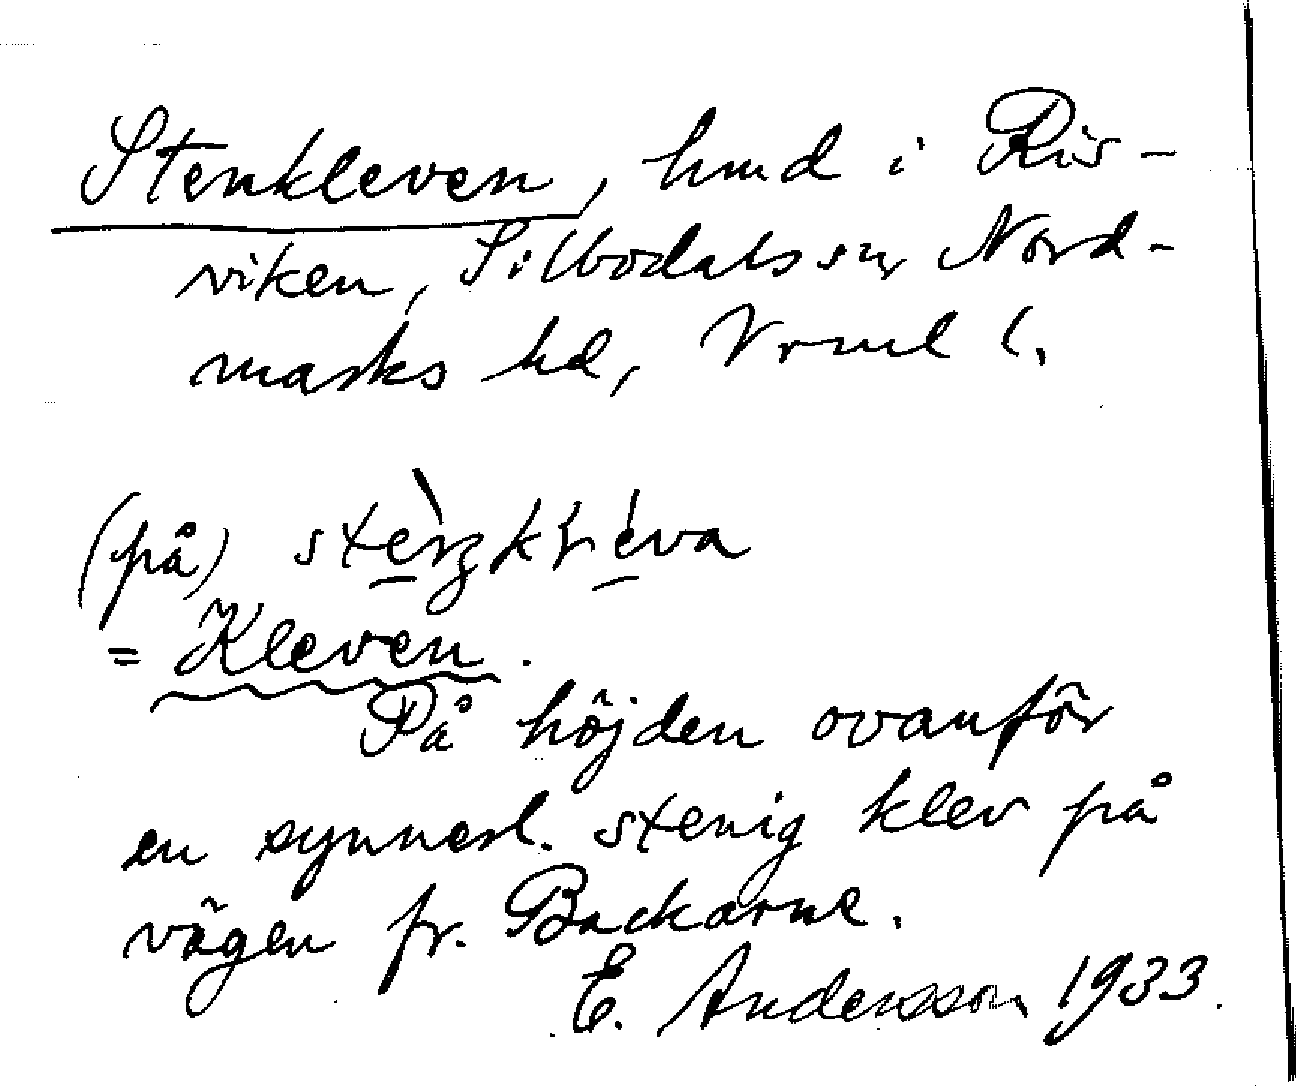 Stenkleven, hmd i Ris-
viken, Silbodals sn, Nord-
marks hd, Vrml l.
(på)
= Kleven.
På höjden ovanför
en synnerl. stenig klev på
vägen fr. Backarne.
E. Andersson 1933.